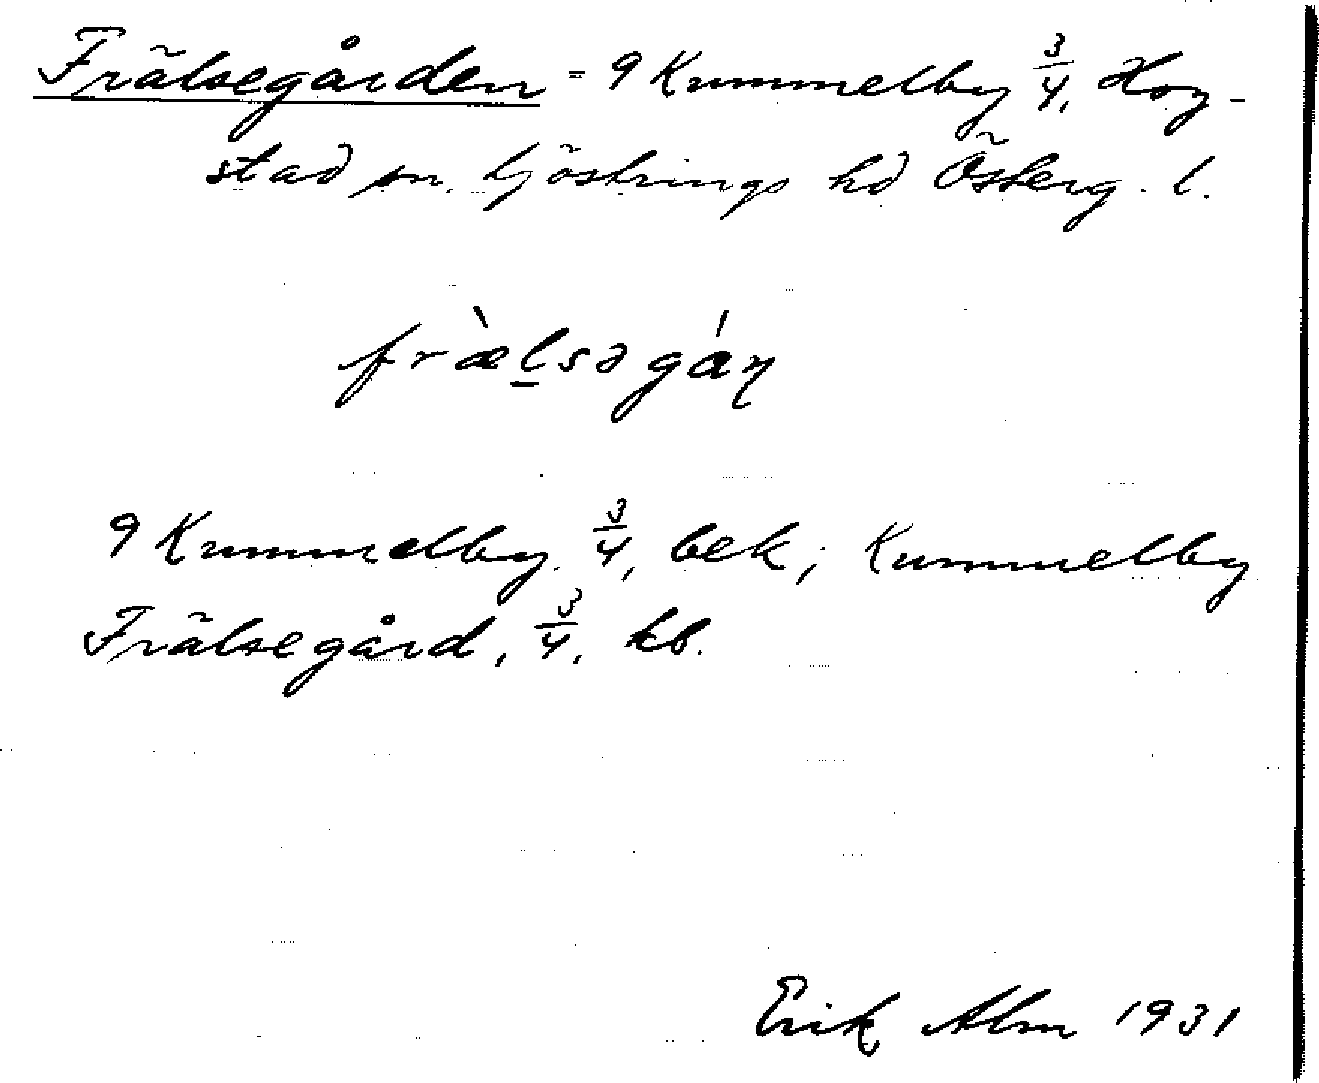 Frälsegården = 9 Kummelby 3/4, Hog-
stad sn. Göstrings hd Österg. l.
fræ̀lsəgáɳ
9 Kummelby 3/4, bek; Kummelby
Frälsegård, 3/4, kb.
Erik Alm 1931